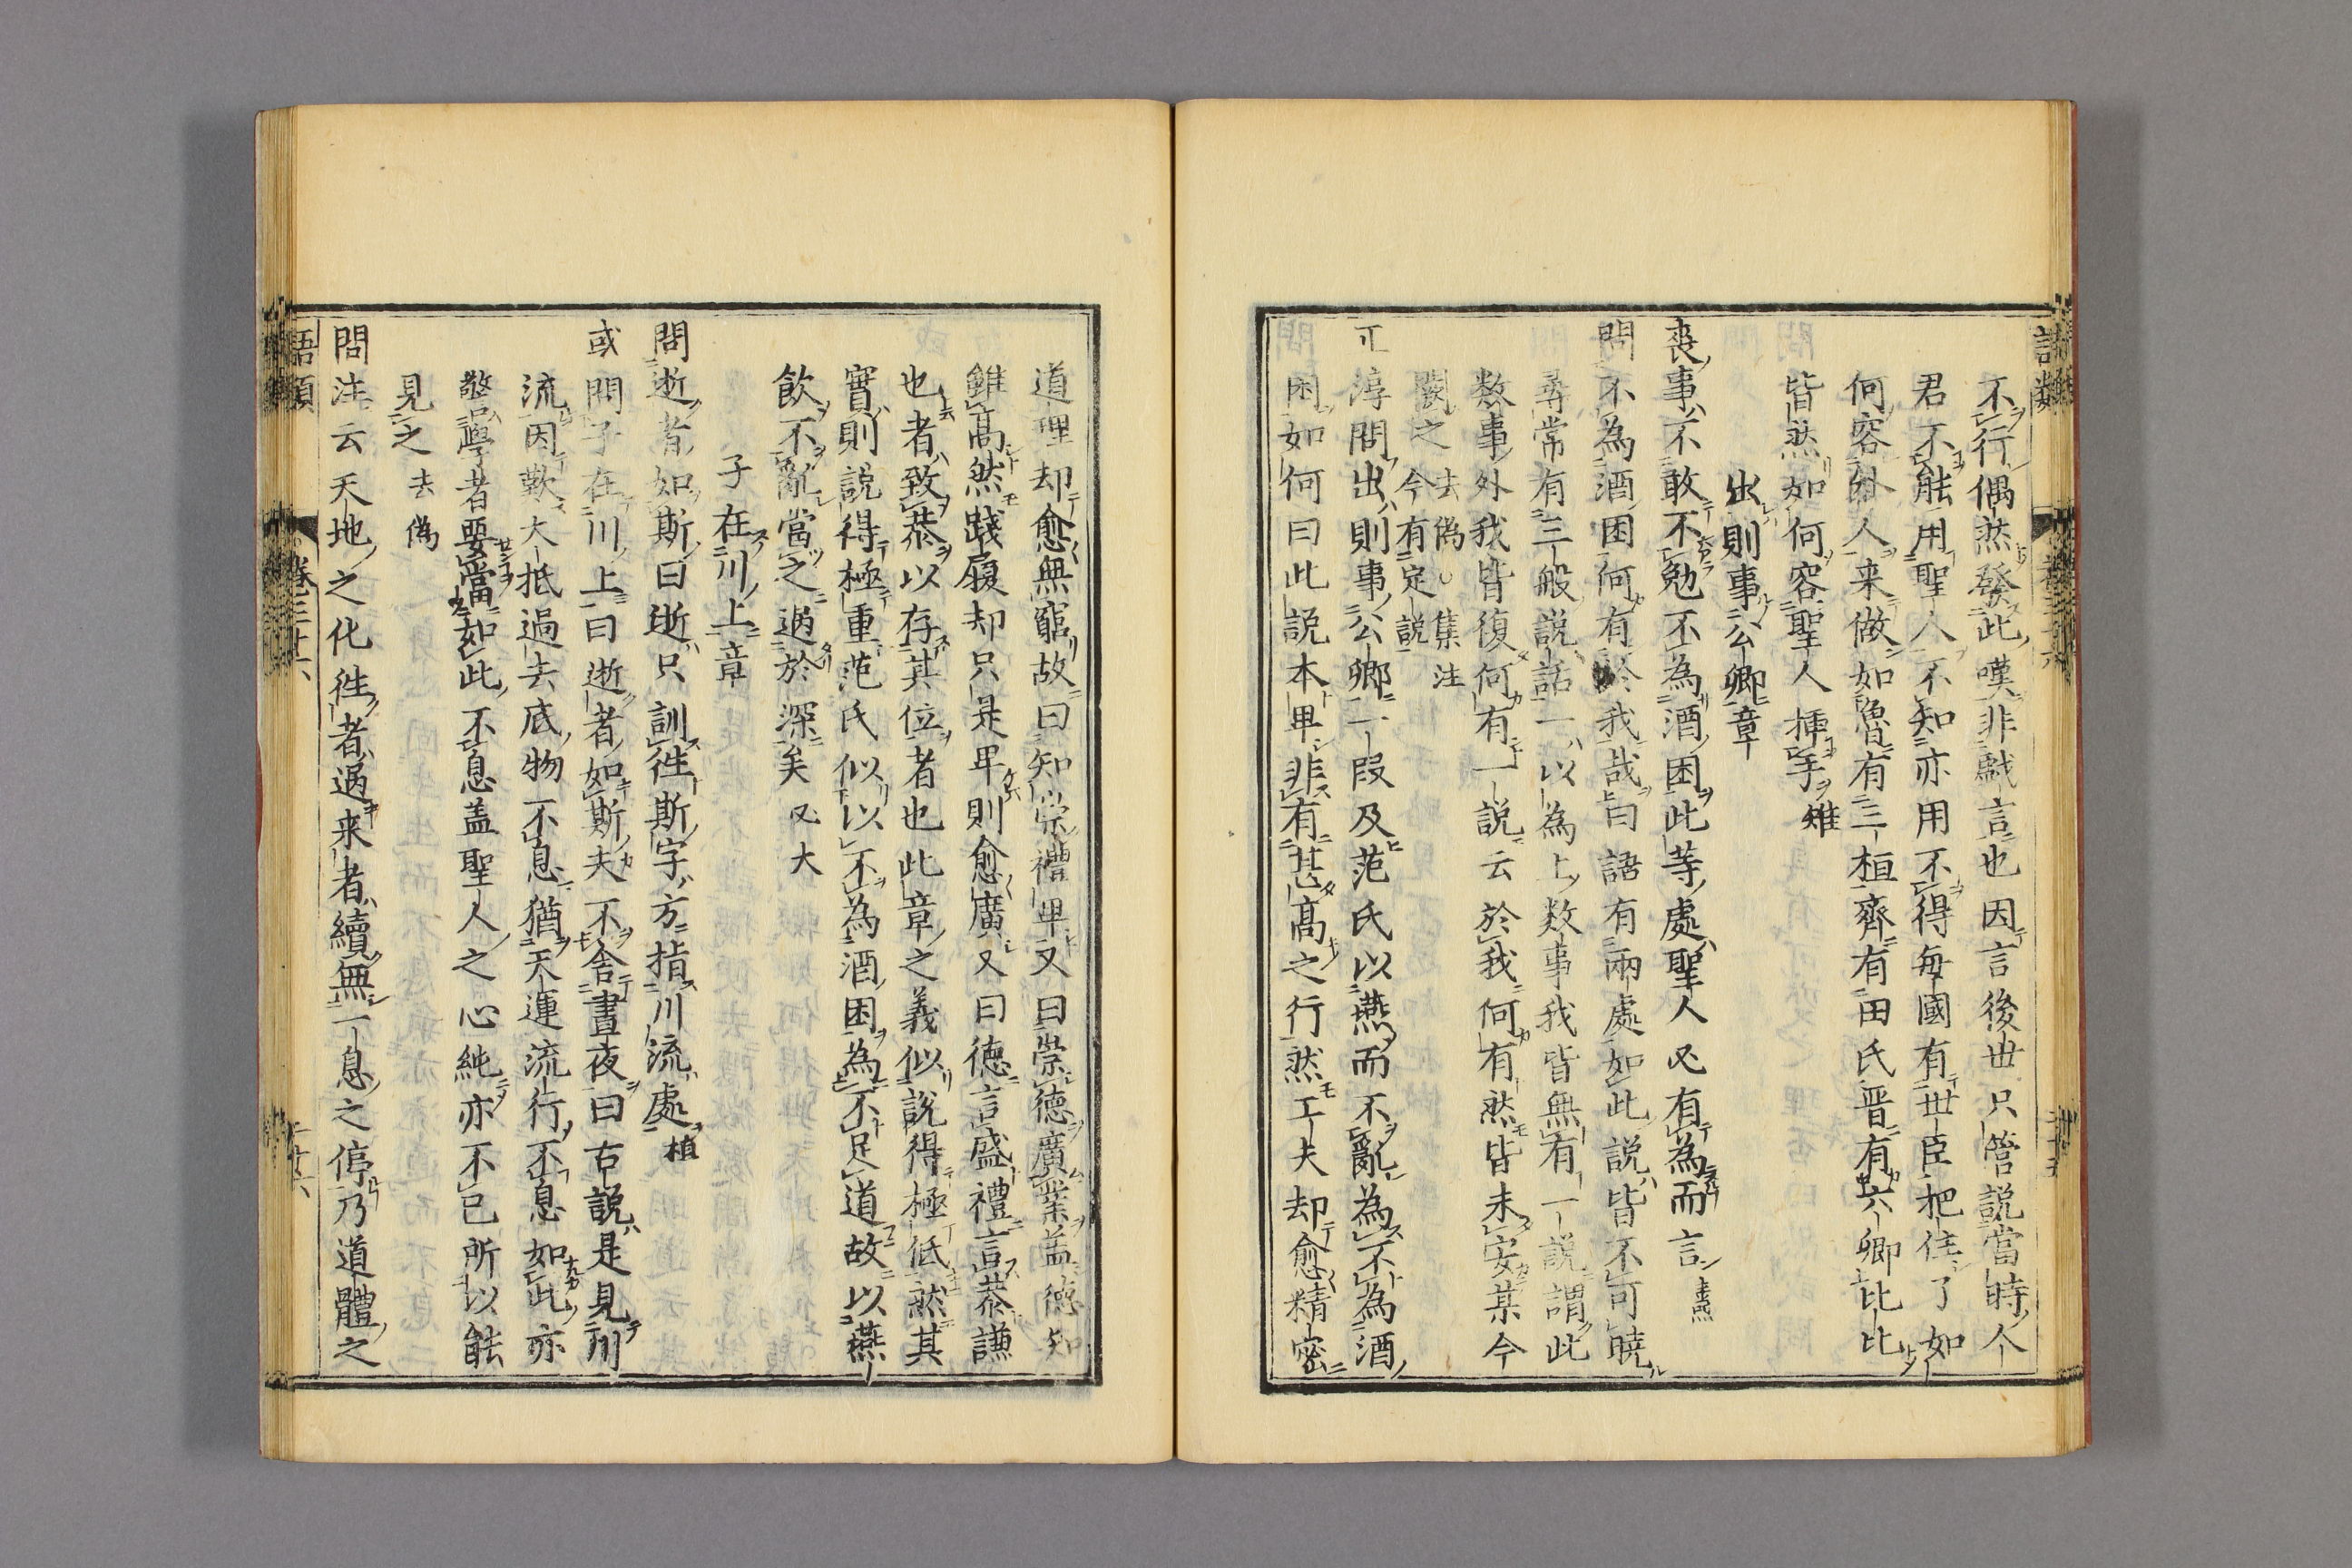 不行偶然發此嘆非戱言也因言後丗只管說當時人
君不能用聖人不知亦用不得每國有丗臣把住了如
何容外人来做如魯有三桓齊有田氏晋有六卿比比
皆然如何容聖人揷手雉
出則事公卿章
喪事不敢不勉不為酒困此等處聖人必有為而言燾
問不為酒困何有於我哉曰語有兩處如此說皆不可曉
尋常有三般說話一以為上数事我皆無有一說謂此
数事外我皆復何有一說云於我何有然皆未安某今
闕之去偽○集注今有定說
正淳問出則事公卿一段及范氏以燕而不亂為不為酒
困如何曰此說本卑非有甚高之行然工夫却愈精密
道理却愈無窮故曰知崇禮卑又曰崇德廣業盖德知
雖高然踐履却只是卑則愈廣又曰德言盛禮言恭謙
也者致恭以存其位者也此章之義似說得極低然其
實則說得極重范氏似以不為酒困為不足道故以燕
飲不亂當之過於深矣必大
子在川上章
問逝者如斯曰逝只訓徃斯字方指川流處植
或問子在川上曰逝者如斯夫不舎晝夜曰古說是見川
流因歎大抵過去底物不息猶天運流行不息如此亦
警學者要當如此不息盖聖人之心純亦不已所以能
見之去偽
問注云天地之化徃者過来者續無一息之停乃道體之
語類
卷三十六
二十六